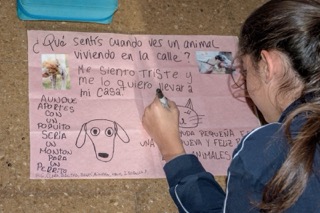 ¿Qué sentís cuando ves un animal
viviendo en la calle?
Me siento triste y
me lo quiero llevar a
mi casa
AUNQUE
APORTES
CON
UN
POQUITO
SERÍA
UN
MONTÓN
PARA
UN
PERRITO
UDA PEQUEÑA
UNA
EVA Y FELIZ
ANIMALES